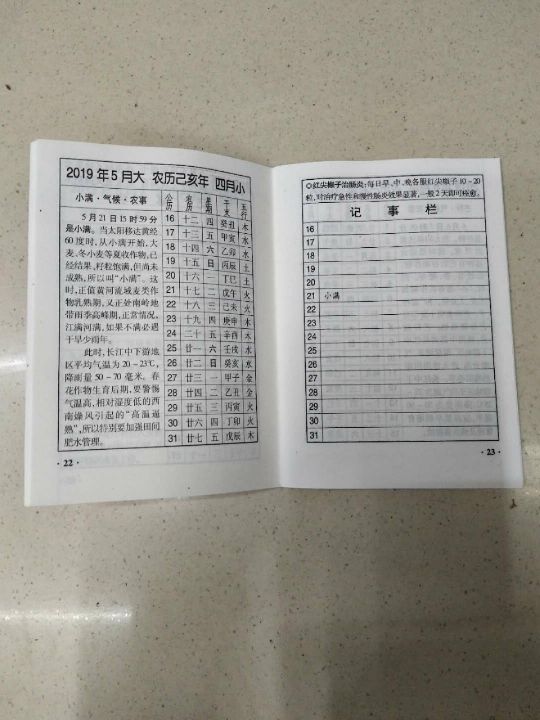 2019年5月大 农历己亥年 四月小
小满·气候·农事
5月21日15时59分
是小满。当太阳移达黄经
60度时,从小满开始,大
麦、冬小麦等夏收作物,已
经结果,籽粒饱满,但尚未
成熟,所以叫“小满”。这
时,正值黄河流域麦类作
物乳熟期,又正处南岭地
带雨季高峰期,正常情况,
江满河满,如果不满必遇
干旱少雨年。
此时,长江中下游地
区平均气温为20-23℃,
降雨量50-70毫米。春
花作物生育后期,要警惕
气温高,相对湿度低的西
南燥风引起的“高温逼
熟”,所以特别要加强田间
肥水管理。
公历 农历 星期 干支 五行
16 十二 四 癸丑 木
17 十三 五 甲寅 水
18 十四 六 乙卯 水
19 十五 日 丙辰 土
20 十六 一 丁巳 土
21 十七 二 戊午 火
22 十八 三 己未 火
23 十九 四 庚申 木
24 二十 五 辛酉 木
25 廿一 六 壬戌 水
26 廿二 日 癸亥 水
27 廿三 一 甲子 金
28 廿四 二 乙丑 金
29 廿五 三 丙寅 火
30 廿六 四 丁卯 火
31 廿七 五 戊辰 木
·22·
◎红尖椒子治肠炎:每日早、中、晚各服红尖椒子10-20
粒,对治疗急性和慢性肠炎效果显著,一般2天即可痊愈。
记事栏
16
17
18
19
20
21 小满
22
23
24
25
26
27
28
29
30
31
·23·